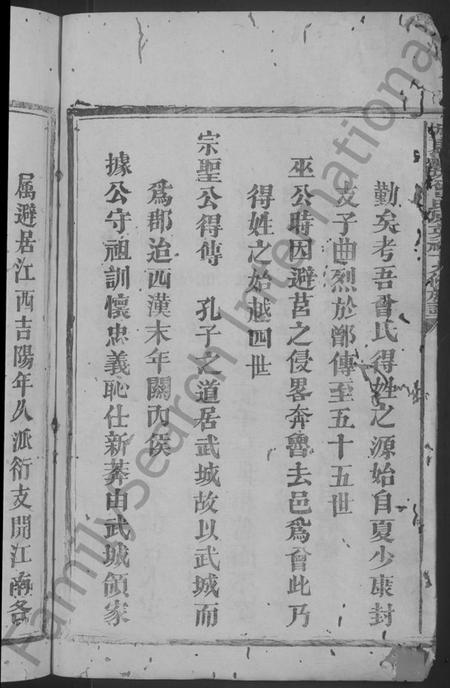 勤矣考吾曾氏得姓之源始自夏少康封
支子曲烈於鄫傳至五十五世
巫公時因避莒之侵畧奔魯去邑爲曾此乃
得姓之始越四世
宗聖公得傳 孔子之道居武城故以武城而
爲郡迨西漢末年關內侯
據公守祖訓懷忠義恥仕新莽由武城領家
属避居江西吉陽年久派衍支開江南各
FamilySearch International